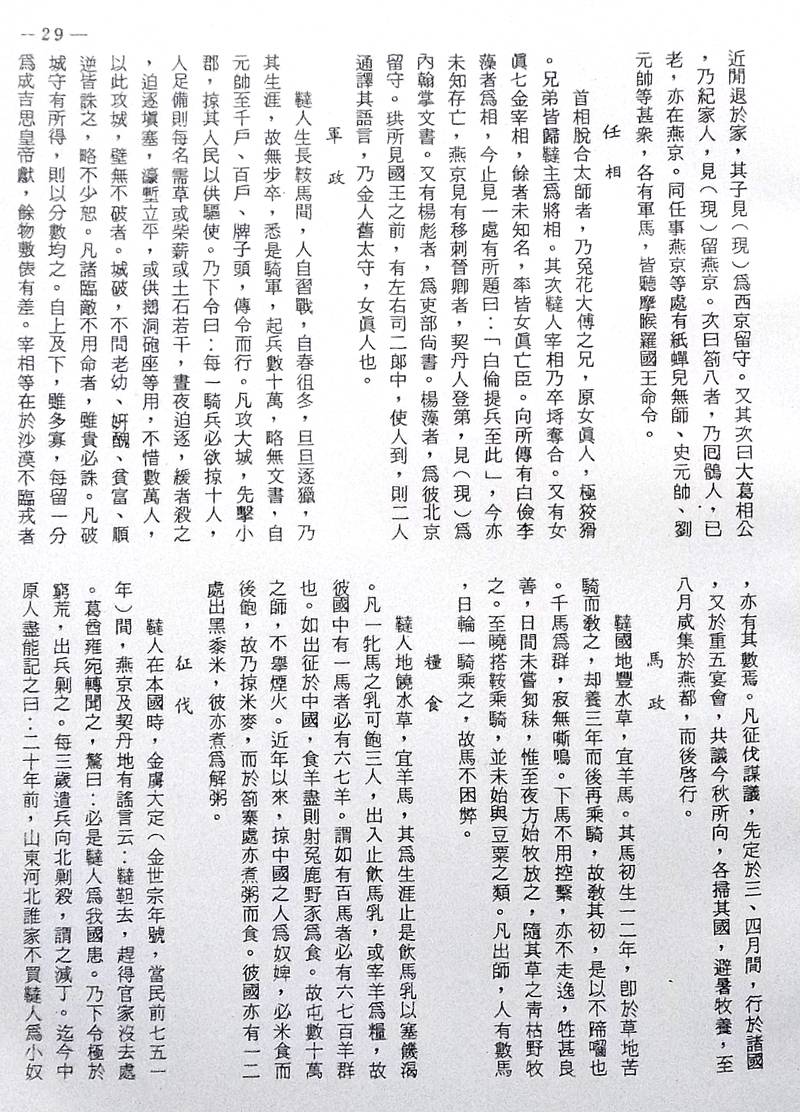 —29—
近聞退於家，其子見（現）爲西京留守。又其次曰大葛相公
，乃紀家人，見（現）留燕京。次曰箚八者，乃囘鶻人，已
老，亦在燕京。同任事燕京等處有紙蟬兒無師、史元帥、劉
元帥等甚衆，各有軍馬，皆聽摩睺羅國王命令。
任相
首相脫合太師者，乃兔花大傅之兄，原女眞人，極狡猾
。兄弟皆歸韃主爲將相。其次韃人宰相乃卒埒奪合。又有女
眞七金宰相，餘者未知名，率皆女眞亡臣。向所傳有白儉李
藻者爲相，今止見一處有所題曰：「白倫提兵至此」，今亦
未知存亡，燕京見有移剌晉卿者，契丹人登第，見（現）爲
內翰掌文書。又有楊彪者，爲吏部尙書。楊藻者，爲彼北京
留守。珙所見國王之前，有左右司二郞中，使人到，則二人
通譯其語言，乃金人舊太守，女眞人也。
軍政
韃人生長鞍馬間，人自習戰，自春徂冬，旦旦逐獵，乃
其生涯，故無步卒，悉是騎軍，起兵數十萬，略無文書，自
元帥至千戶、百戶、牌子頭，傳令而行。凡攻大城，先擊小
郡，掠其人民以供驅使。乃下令曰：每一騎兵必欲掠十人，
人足備則每名需草或柴薪或土石若干，晝夜迫逐，緩者殺之
，迫逐塡塞，濠塹立平，或供鵝洞砲座等用，不惜數萬人，
以此攻城，壁無不破者。城破，不問老幼、姸醜、貧富、順
逆皆誅之，略不少恕。凡諸臨敵不用命者，雖貴必誅。凡破
城守有所得，則以分數均之。自上及下，雖多寡，每留一分
爲成吉思皇帝獻，餘物敷俵有差。宰相等在於沙漠不臨戎者
，亦有其數焉。凡征伐謀議，先定於三、四月間，行於諸國
，又於重五宴會，共議今秋所向，各掃其國，避暑牧養，至
八月咸集於燕都，而後啓行。
馬政
韃國地豐水草，宜羊馬。其馬初生一二年，卽於草地苦
騎而敎之，却養三年而後再乘騎，故敎其初，是以不蹄嚙也
。千馬爲群，寂無嘶鳴。下馬不用控繫，亦不走逸，牲甚良
善，日間未嘗芻秣，惟至夜方始牧放之，隨其草之靑枯野牧
之。至曉搭鞍乘騎，並未始與豆粟之類。凡出師，人有數馬
，日輪一騎乘之，故馬不困弊。
糧食
韃人地饒水草，宜羊馬，其爲生涯止是飮馬乳以塞饑渴
。凡一牝馬之乳可飽三人，出入止飮馬乳，或宰羊爲糧，故
彼國中有一馬者必有六七羊。謂如有百馬者必有六七百羊群
也。如出征於中國，食羊盡則射兔鹿野豕爲食。故屯數十萬
之師，不擧煙火。近年以來，掠中國之人爲奴婢，必米食而
後飽，故乃掠米麥，而於箚寨處亦煮粥而食。彼國亦有一二
處出黑黍米，彼亦煮爲解粥。
征伐
韃人在本國時，金虜大定（金世宗年號，當民前七五一
年）間，燕京及契丹地有謠言云：韃靼去，趕得官家沒去處
。葛酋雍宛轉聞之，驚曰：必是韃人爲我國患。乃下令極於
窮荒，出兵剿之。每三歲遣兵向北剿殺，謂之減丁。迄今中
原人盡能記之曰：二十年前，山東河北誰家不買韃人爲小奴